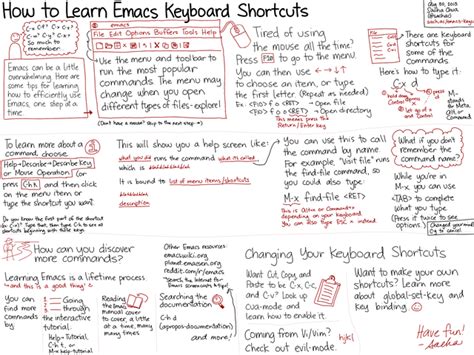 How to Learn Emacs Keyboard Shortcuts
Aug 30, 2013
Sacha Chua
(@sachac)
C-x C-f? C-x b?
So much to
remember!
Emacs can be a little
overwhelming. Here are
some tips for learning
how to efficiently use
Emacs, one step at a
time.
emacs
File Edit Options Buffers Tools Help
Use the menu and toolbar to
run the most popular
commands. The menu may
change when you open
different types of files-explore!
(Don't have a mouse? Skip to the next step →)
Tired of using
the mouse all the time?
Press F10 to go to the menu.
You can then use ← →
to choose an item, or type
the first letter (Repeat as needed)
Ex: <F10> f o <RET> → Open directory
This means press the
Return/Enter key
There are keyboard
shortcuts for
some of the
commands
Here's how to type it:
C-x d
hold down
Control
press
x
let go of x
and Control
press
d
To learn more about a
command, choose
Help→Describe→Describe Key
or Mouse Operation (or
press C-h k) and then click
on the menu item or type
the shortcut you want.
Do you know the first part of the shortcut
(ex: C-x)? Type that, then type C-h to see all
shortcuts beginning with those keys.
This will show you a help screen like:
what you did runs the command what it's called,
which is
It is bound to list of menu items/shortcuts
description
You can use this to call
a command by name
For example "Visit file" runs
the find-file command, so
you could also type:
M-x find-file <RET>
This is Alt or Command
depending on your keyboard
You can also type ESC x instead
What if you don't
remember the
command name?
While you're in
M-x you can use
<TAB> to complete
what you've typed.
(Press it twice to see
options.)
Changed your mind?
C-g to cancel
How can you discover
more commands?
Other Emacs resources:
emacswiki.org
planet.emacsen.org
reddit.com/r/emacs
Learning Emacs is a lifetime process
← and this is a good thing! c:
You can
find more
commands
by
Going
through the
interactive
tutorial:
Help→Tutorial,
C-h t, or
M-x help-tutorial
Reading the
Emacs manual
cover to
cover, a little
at a time,
many many
times
Searching the
documentation
C-h d
(apropos-documentation)
Changing Your Keyboard Shortcuts
Want Cut, Copy
and Paste to
be C-x, C-c,
and C-v? Look
up Cua-mode &
learn how to
enable it!
Want to make your own
shortcuts? Learn more
about global-set-key
and key binding
Coming from Vi/Vim?
Check out evil-mode.
hjkl
Have fun!
- Sacha